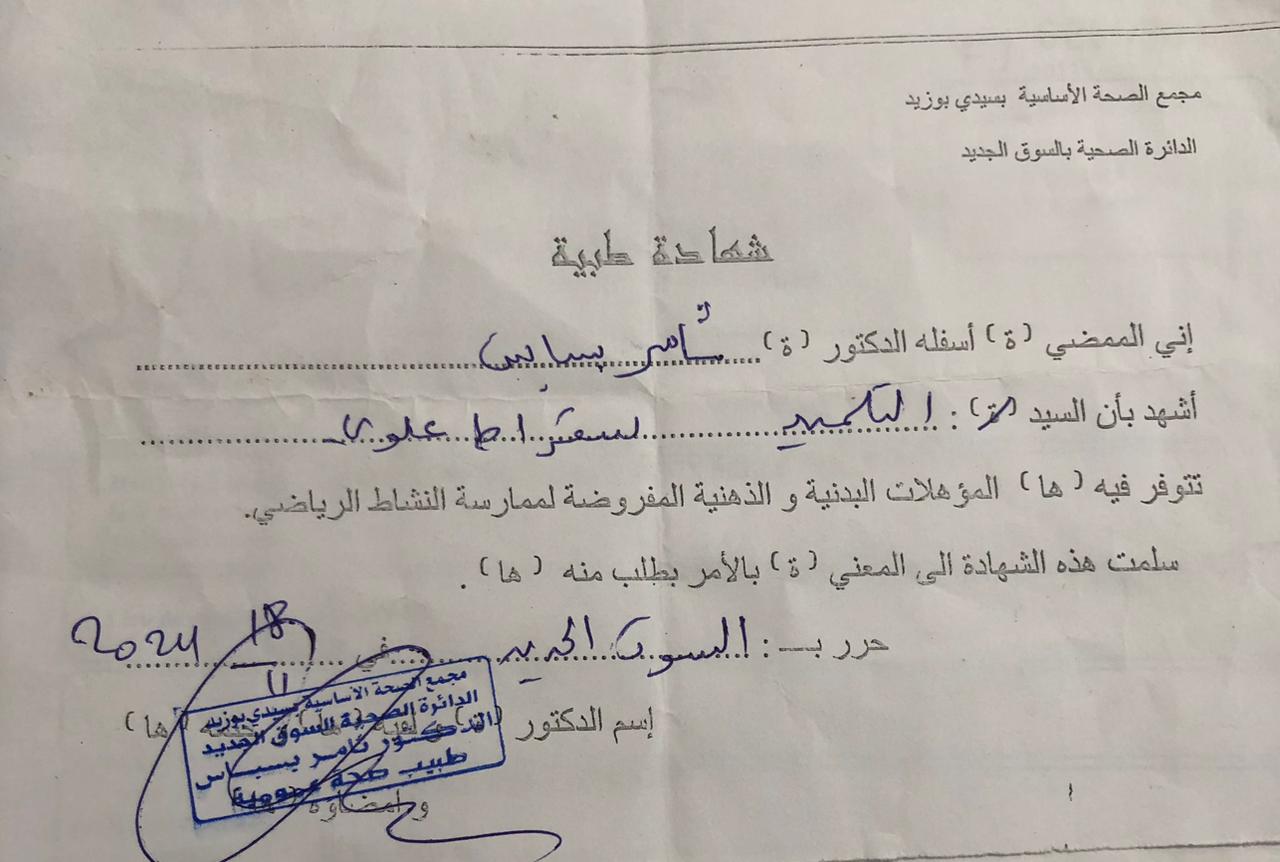 مجمع الصحة الأساسية بسيدي بوزيد
الدائرة الصحية بالسوق الجديد
شهادة طبية
إني الممضي (ة) أسفله الدكتور (ة) ثامر بسباس
أشهد بأن السيد (ة) : التلميذ سقراط علوي
تتوفر فيه (ها) المؤهلات البدنية و الذهنية المفروضة لممارسة النشاط الرياضي.
سلمت هذه الشهادة الى المعني (ة) بالأمر بطلب منه (ها) .
حرر بـ : السوق الجديد في 18/11 2024
إسم الدكتور (ة) و لقبه (ها) و ختمه (ها)
و امضاؤه
مجمع الصحة الأساسية بسيدي بوزيد
الدائرة الصحية السوق الجديد
الدكتور ثامر بسباس
طبيب صحة عمومية